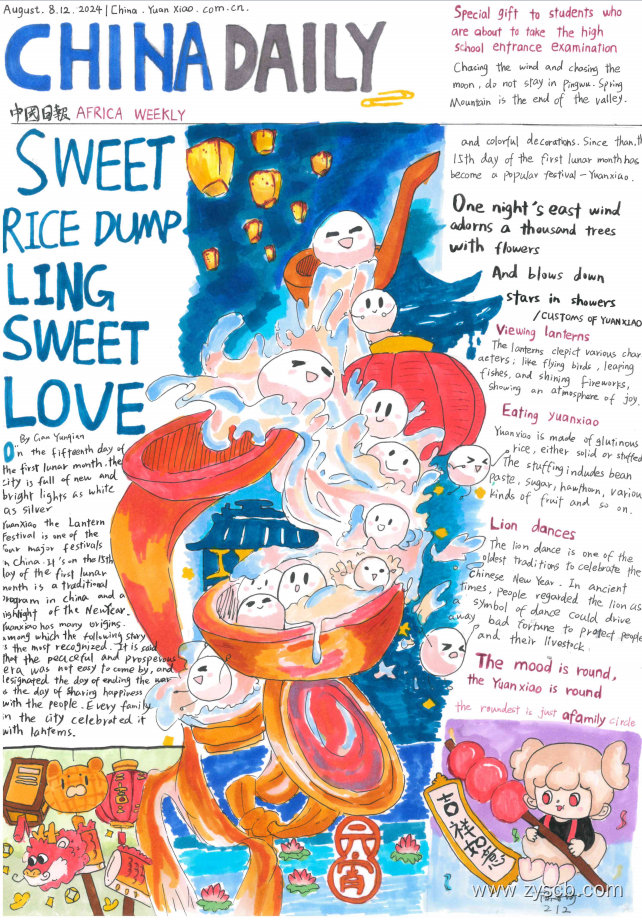 August. 8.12. 2024 | China. Yuan Xiao. com.cn.
CHINA DAILY
中國日报 AFRICA WEEKLY
Special gift to students who
are about to take the high
school entrance examination
Chasing the wind and chasing the
moon, do not stay in Pingwu. Spring
Mountain is the end of the valley.
SWEET
RICE DUMP
LING
SWEET
LOVE
By Cian Yunqian
On the fifteenth day of
the first lunar month. the
city is full of new and
bright lights as white
as silver
Yuanxiao the Lantern
Festival is one of the
four major festivals
n China. It's on the 15th
day of the first lunar
month is a traditional
program in china and a
ighlight of the New Year.
Yuanxiao has many origins.
among which the following story
s the most recognized. It is said
that the peaceful and prosperous
era was not easy to come by, and
designated the day of ending the war
s the day of sharing happiness
with the people. Every family
in the city celebrated it
with lanterns.
and colorful decorations. Since than. th
15th day of the first lunar month has
become a popular festival - Yuanxiao.
One night's east wind
adorns a thousand trees
with flowers
And blows down
stars in showers
/CUSTOMS OF YUANXIAO
Viewing lanterns
The lanterns clepict various char
acters; like flying birds, leaping
fishes, and shining fireworks,
showing an atmosphere of joy.
Eating yuanxiao
Yuanxiao is made of glutinous
rice, either solid or stuffed
The stuffing indudes bean
paste, sugar, hawthorn, variou
kinds of fruit and so on.
Lion dances
The lion dance is one of the
oldest traditions to celebrate the
Chinese New Year. In ancient
times, people regarded the lion as
a symbol of dance could drive
away bad fortune to protect people
and their livestick.
The mood is round,
the Yuanxiao is round
the roundest is just afamily circle
吉
吉祥如意
元宵
www.zyscb.com
2/2